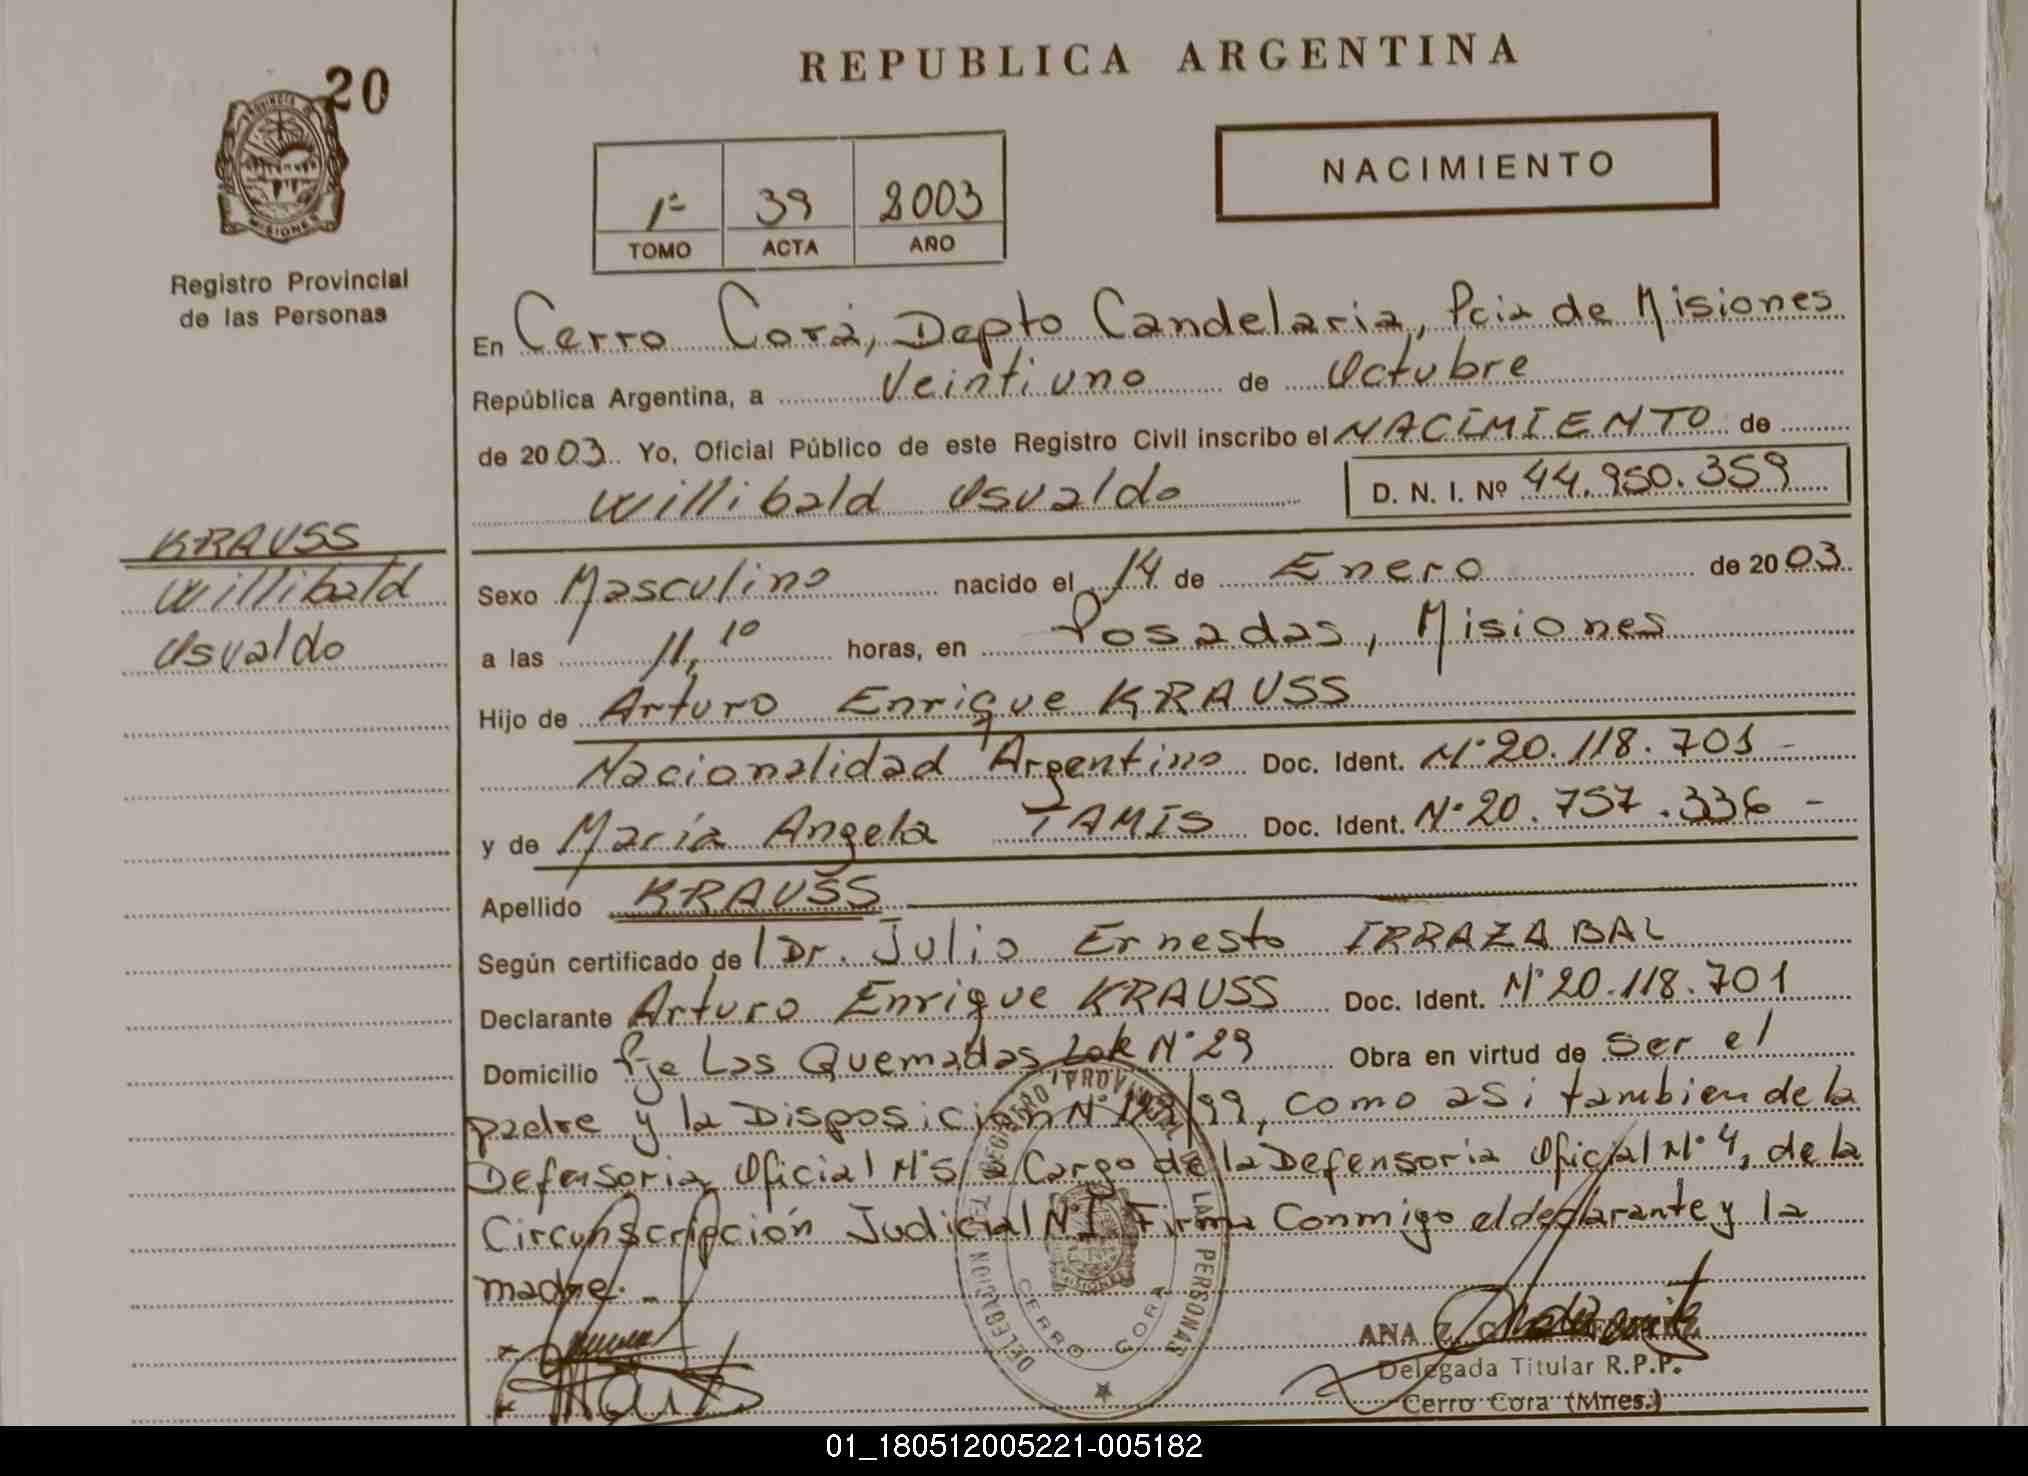 REPUBLICA ARGENTINA
20
NACIMIENTO
1º 39 2003
TOMO ACTA AÑO
Registro Provincial
de las Personas
En Cerro Corá, Depto Candelaria, Pcia de Misiones
República Argentina, a Veintiuno de Octubre
de 2003 Yo, Oficial Público de este Registro Civil inscribo el NACIMIENTO de
Willibald Osvaldo D. N. I. Nº 44.950.359
KRAUSS
Willibald
Osvaldo
Sexo Masculino nacido el 14 de Enero de 2003
a las 11,10 horas, en Posadas, Misiones
Hijo de Arturo Enrique KRAUSS
Nacionalidad Argentino Doc. Ident. Nº 20.118.701 -
y de María Angela TAMIS Doc. Ident. Nº 20.757.336 -
Apellido KRAUSS
Según certificado de l Dr. Julio Ernesto IRRAZABAL
Declarante Arturo Enrique KRAUSS Doc. Ident. Nº 20.118.701
Domicilio Pje Las Quemadas Lote Nº 29 Obra en virtud de ser el
padre y la Disposicion Nº /99, como asi tambien de la
Defensoria Oficial Nº 5 a Cargo de la Defensoria Oficial Nº 4, de la
Circunscripción Judicial Nº I Firma Conmigo el declarante y la
madre. -
REGISTRO PROVINCIAL DE LAS PERSONAS
DELEGACION
CERRO CORA
MISIONES
ANA
Delegada Titular R.P.P.
Cerro Cora (Mnes.)
01_180512005221-005182